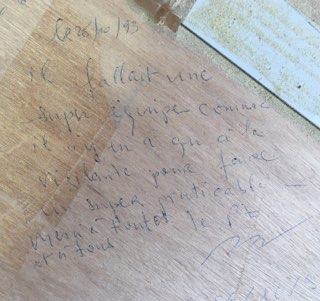 le 26/10/93
il fallait une
super équipe comme
il n'y en a qu'à la
pour faire
un super praticable
Merci à le P7
et à tous